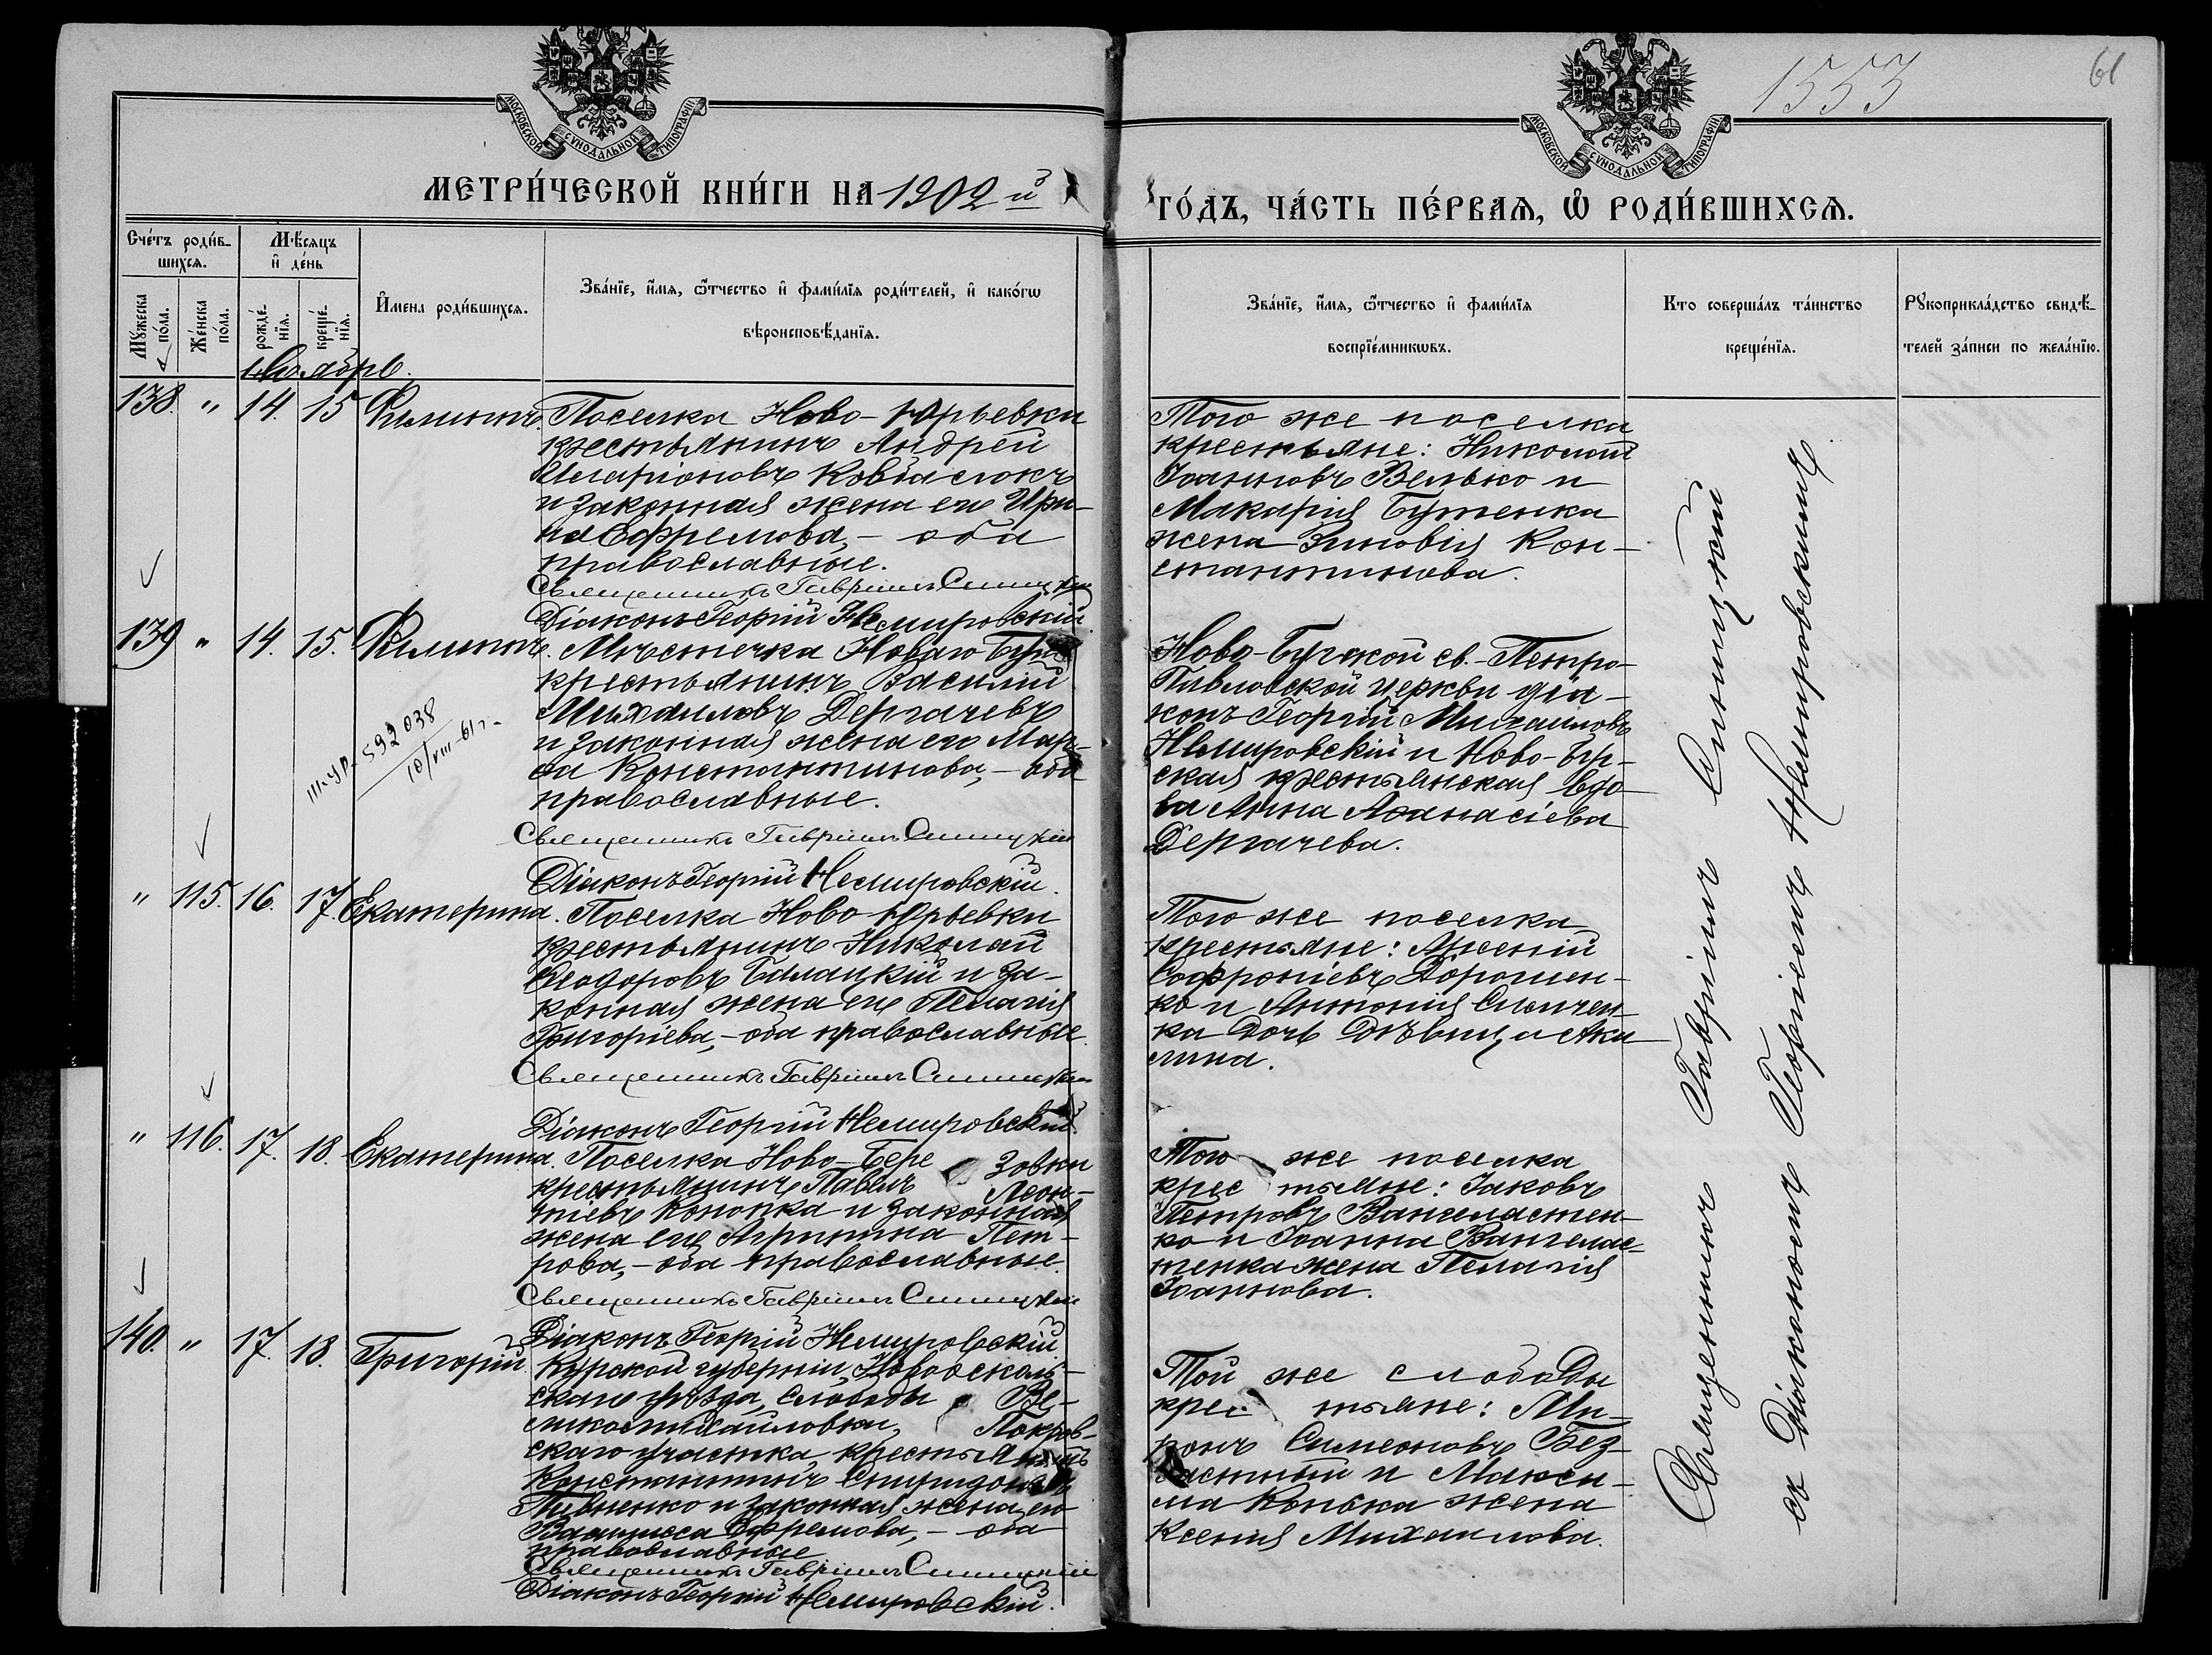 1553
61
МОСКОВСКОЙ СУНОДАЛЬНОЙ ТИПОГРАФІИ
МОСКОВСКОЙ СУНОДАЛЬНОЙ ТИПОГРАФІИ
МЕТРИ́ЧЕСКОЙ КНИ́ГИ НА 1902 й
ГО́ДЪ, ЧА́СТЬ ПЕ́РВАѦ, Ѽ РОДИ́ВШИХСѦ.
Сче́тъ роди́в-
шихсѧ.
Мꙋ́жеска по́ла.
Же́нска по́ла.
Мѣ́сѧцъ
и҆ де́нь
рожде́-
нїѧ.
креще́-
нїѧ.
И҆мена роди́вшихсѧ.
Зва́нїе, и҆́мѧ, ѻ҆́тчество и҆ фами́лїѧ роди́телей, и҆ како́гѡ
вѣроисповѣ́данїѧ.
Зва́нїе, и҆́мѧ, ѻ҆́тчество и҆ фами́лїѧ
воспрїе́мникѡвъ.
Кто соверша́лъ та́инство
креще́нїѧ.
Рꙋкоприкла́дство свидѣ́-
телей за́писи по жела́нїю.
138. " 14. 15 Филиппъ.
Поселка Ново-Юрьевки
крестьянинъ Андрей
Иларіоновъ Ковбаслюкъ
и законная жена его Ири-
на Ефремова, - оба
православные.
Священникъ Гавріилъ Синицкій
Діаконъ Георгій Немировскій.
Того же поселка
крестьяне: Николай
Іоанновъ Велько и
Макарія Бутенка
жена Зиновія Кон-
стантинова.
139 " 14. 15. Филиппъ.
III-УР-592038
10/VIII-61 г.
Мѣстечка Новаго Буга
крестьянинъ Василій
Михаиловъ Дергачевъ
и законная жена его Мар-
ѳа Константинова, - оба
православные.
Священникъ Гавріилъ Синицкій
Діаконъ Георгій Немировскій.
Ново-Бугской св.-Петро-
Павловской церкви діа-
конъ Георгій Михаиловъ
Немировскій и Ново-Буг-
ская крестьянская вдо-
ва Анна Аѳанасіева
Дергачева.
" 115. 16. 17. Екатерина.
Поселка Ново-Юрьевки
крестьянинъ Николай
Ѳеодоровъ Балацкій и за-
конная жена его Пелагія
Григоріева, - оба православные.
Священникъ Гавріилъ Синицкій
Діаконъ Георгій Немировскій.
Того же поселка
крестьяне: Арсеній
Софроніевъ Дорошен-
ко и Антонія
ка дочь дѣвица Аки-
лина.
" 116. 17. 18. Екатерина.
Поселка Ново-Бере зовки
крестьянинъ Павелъ Леон-
тіевъ Конопка и законная
жена его Агрипина Пет-
рова, - оба православные.
Священникъ Гавріилъ Синицкій
Діаконъ Георгій Немировскій
Того же поселка
крес тьяне: Іаковъ
Петровъ Вангеластен-
ко и Іоанна Вангелас-
тенка жена Пелагія
Іоаннова.
140. " 17. 18. Григорій
Курской губерніи, Новооскаль-
скаго уѣзда, слободы Ве-
ликомихайловки, Покров-
скаго участка, крестьянинъ
Константинъ Спиридоновъ
Пивненко и законная жена его
Васса Ефремова, - оба
православные
Священникъ Гавріилъ Синицкій
Діаконъ Георгій Немировскій.
Той же слободы
крес тьяне: Ми-
ронъ Симеоновъ Без-
и Макси-
ма Конька жена
Ксенія Михаилова.
Священникъ Гавріилъ Синицкій
съ Діакономъ Георгіемъ Немировскимъ.